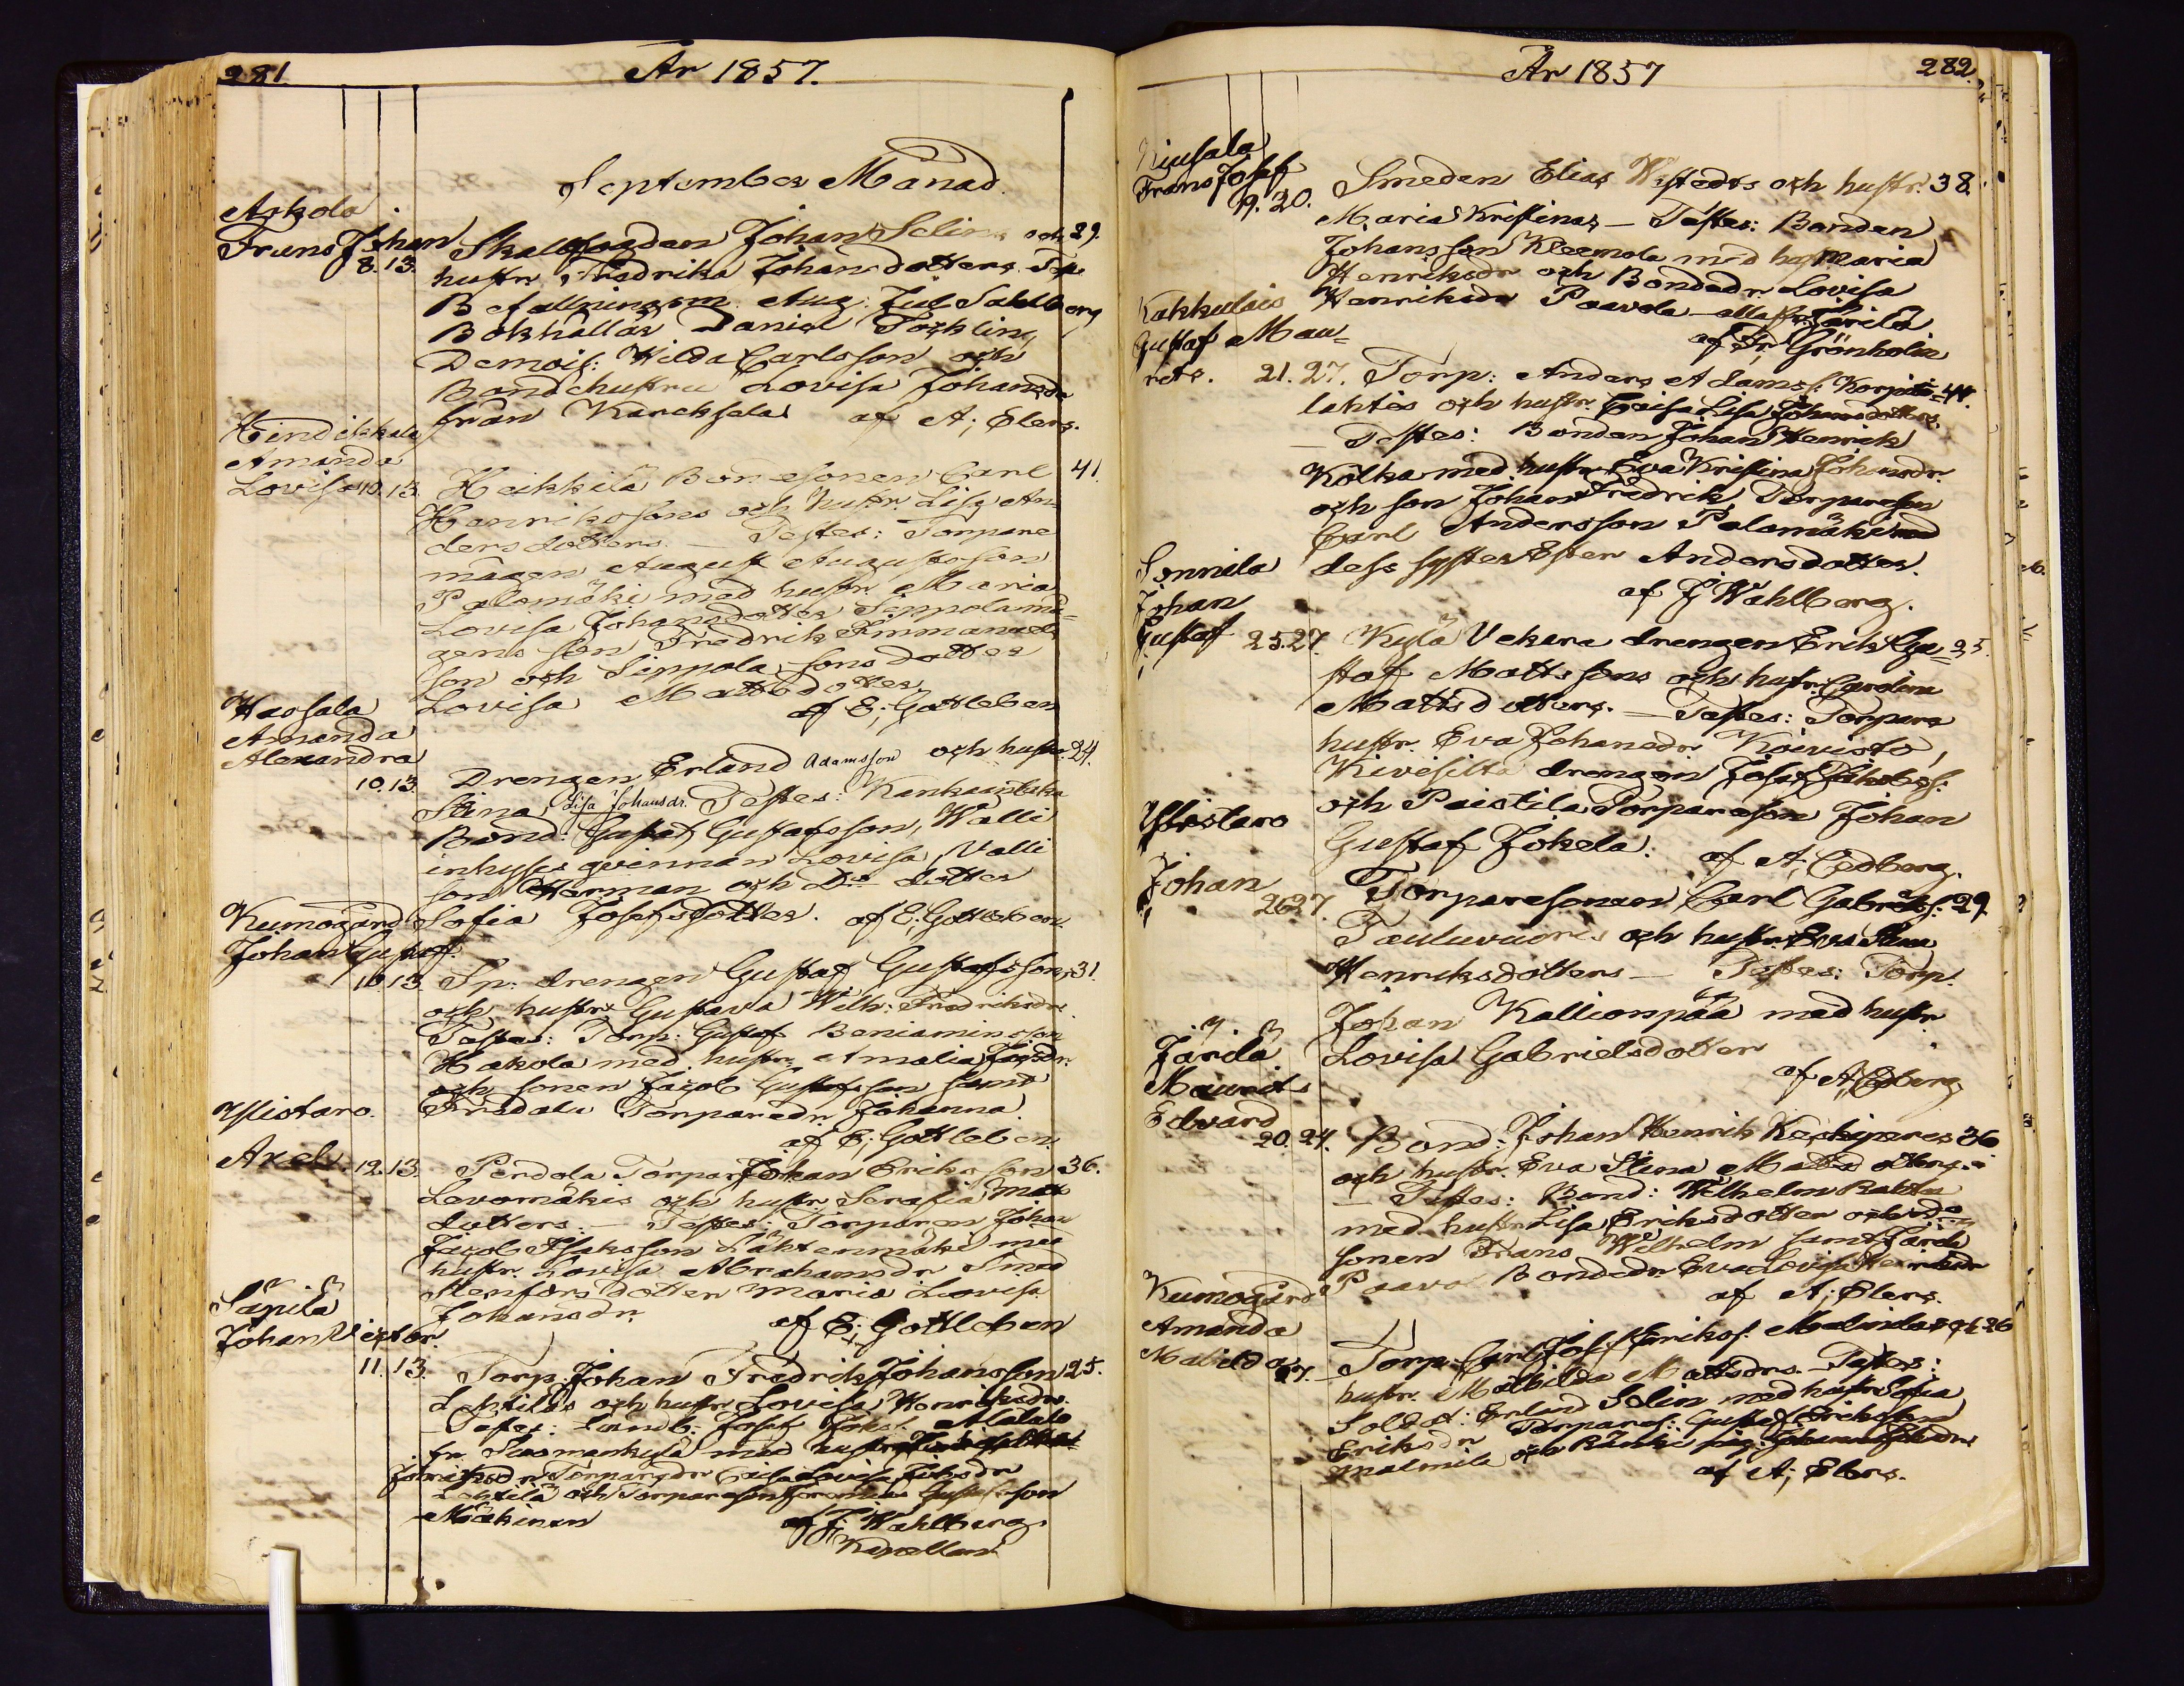 281.
År 1857.
September Månad.
Askola
Frans Johan
8. 13.
Skallfogden Johan Selins och 29.
hustr. Fredrika Johansdotters. Test:
Befallningsm. Aug: Jul. Sahlberg
Bokhållar Daniel
Demois: Hilda Carlsson och
Bondehustru Lovisa Johansdr
från Karhksala af A; Elers.
Hindikkala
Amanda
Lovisa 10. 13.
Heikkilä Bondesonen Carl 41.
Henrikssons och hustr. Lisa An-
dersdotters. — Testes: Torpare
mågen August Augustsson
Palomäki med hustr. Maria
Lovisa Johansdotter Seppola må-
gens son Fredrik Emmanuels
son och Seppola sonsdotter
Lovisa Mattsdotter
af E; Gottleben
Hassala
Amanda
Alexandra
10. 13.
Drengen Erland Adamsson och hustr. 24.
Stina Lisa Johansdr. Testes:
Bond: Gustaf Gustafsson, Walli
inhyses qvinnan Lovisa, Valli
son Herman och Do dotter
Sofia Josefsdotter. af E; Gottleben
Kumogård
Johan Gustaf.
10. 13.
Sp: drengen Gustaf Gustafssons 31.
och hustr: Gustava Wilh: Fredriksdrs.
Testes: Torp: Gustaf Beniaminsson
Hakola med hustr. Amalia
och sonen Jacob Gustafsson samt
Fredalu Torparedr. Johanna.
af E; Gottleben
Ylistaro.
Axel. 12. 13.
Perdola Torpar Johan Eriksson 36.
Levomäkis och hustr. Serafia Matts
dotters. — Testes: Torparen Johan
Jacob Isaksson Lähtenmäki med
hustr. Lovisa Abrahamsdr Smed
Stenfors dotter Maria Lovisa
Johansdr. af E; Gottleben
Säpilä
Johan Victor.
11. 13.
Torp: Johan Fredrik Johansson 25.
Lehtiläs och hustr. Lovisa Henriksdrs.
Testes: Landb: Josef
fr med hustr.
Torparedr Lovisa
Lehtilä och Torparesson Gustafsson
Mäkinen af J; Wahlberg.
Kapellan
År 1857
282.
Kiusala
Frans Josef
19. 20.
Smeden Elias Wistedts och hustr. 38.
Maria Kristinas — Testes: Bonden
Johansson Kleemola med h. Maria
Henriksdr och Bondedr. Lovisa
Henriksdr Paavola — alla fr. Järilä
af Fr Grönholm
Kakkulais
Gustaf Mau-
rits. 21. 27.
Torp: Anders Adamss: Korpio= 44.
lahtis och hustr. Lisa Johansdotters.
— Testes: Bonden Johan Henrik
Kölka med hustr. Eva Kristina Johansdr.
och son Johan Fredrik, Torparesson
Carl Andersson Palomäki med
dess syster Ester Andersdotter.
af J Wahlberg.
Sonnila
Johan
Gustaf 25. 27.
Kylä Vekara drengen Erik Gu= 25.
staf Mattssons och hustr. Carolina
Mattsdotters. — Testes: Torpare
hustr. Eva Johansdr Koivisto,
Kivisilta drengen Josef Jakobss:
och Paistila Torpareson Johan
Gustaf Jokela. af A; Cedberg.
Ylistaro
Johan
26 27.
Torparesonen Carl Gabrielss: 29.
Tauluvuoris och hustr. Eva Stina
Henriksdotters — Testes: Torp.
Johan Kallionpää med hustr
Lovisa Gabrielsdotter
af A;
Järilä
Maurits
Edvard
20. 24.
Bond: Johan Henrik 36
och hustr. Eva Stina Mattsdotters.
— Testes: Bond: Wilhelm
med hustr Lisa Eriksdotter och do
sonen Frans Wilhelm samt Järilä
Paavola Bondedr Eva Lovisa Henriksdr
af A; Elers.
Kumogård
Amanda
Matilda 27.
Torp: Carl Jos: Erikss: Malmilas och 26
hustr. Mathilda Mattsdrs. — Testes:
Soldat: Erland Selin med hustr Sofia
Eriksdr Torpares: Gustaf Eriksson
Malmila och
af A; Elers.